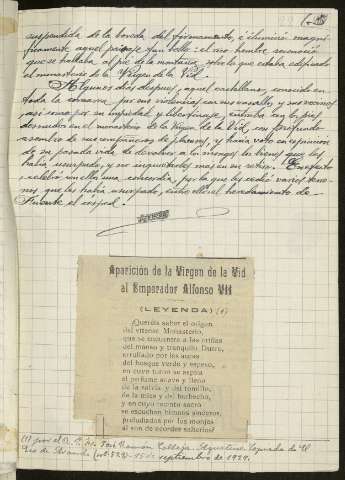 suspendida de la boveda del firmamento, e iluminó magní-
ficamente aquel paisaje tan bello: el rio hombre reconoció
que se hallaba al pie de la montaña, sobre la que estaba edificado
el monasterio de la Virgen de la Vid.
Algunos dias despues, aquel castellano, conocido en
toda la comarca por sus violencias con sus vasallos y sus vecinos
asi como por su impiedad y libertinaje, entraba con los pies
desnudos en el monasterio de la Virgen de la Vid, con profundo
asombro de sus compañeros de placeres, y hacia voto en expiacion
de su pasada vida de devolver a los monges los bienes que les
habia usurpado, y no inquietarles mas en su retiro. En efecto
celebró con ellos una concordia, por la que les cedió varios terre-
nos que les habia usurpado, entre ellos el heredamiento de
Fuente el cesped.
Aparición de la Virgen de la Vid
al Emperador Alfonso VII
(LEYENDA) (1)
Queréis saber el origen
del vitense Monasterio,
que se encuentra a las orillas
del manso y tranquilo Duero,
arrullado por las auras
del bosque verde y espeso,
en cuyo turno se espira
el perfume suave y lleno
de la salvia y del tomillo,
de la jara y del barbecho,
y en cuyo recinto sacro
se escuchan himnos sinceros,
preludiados por los monjes
al son de acordes salterios?
(1) por el P. Fr. José Ramón Calleja. Agustino. Tomada de El
Eco de Aranda 15 septiembre de 1929.